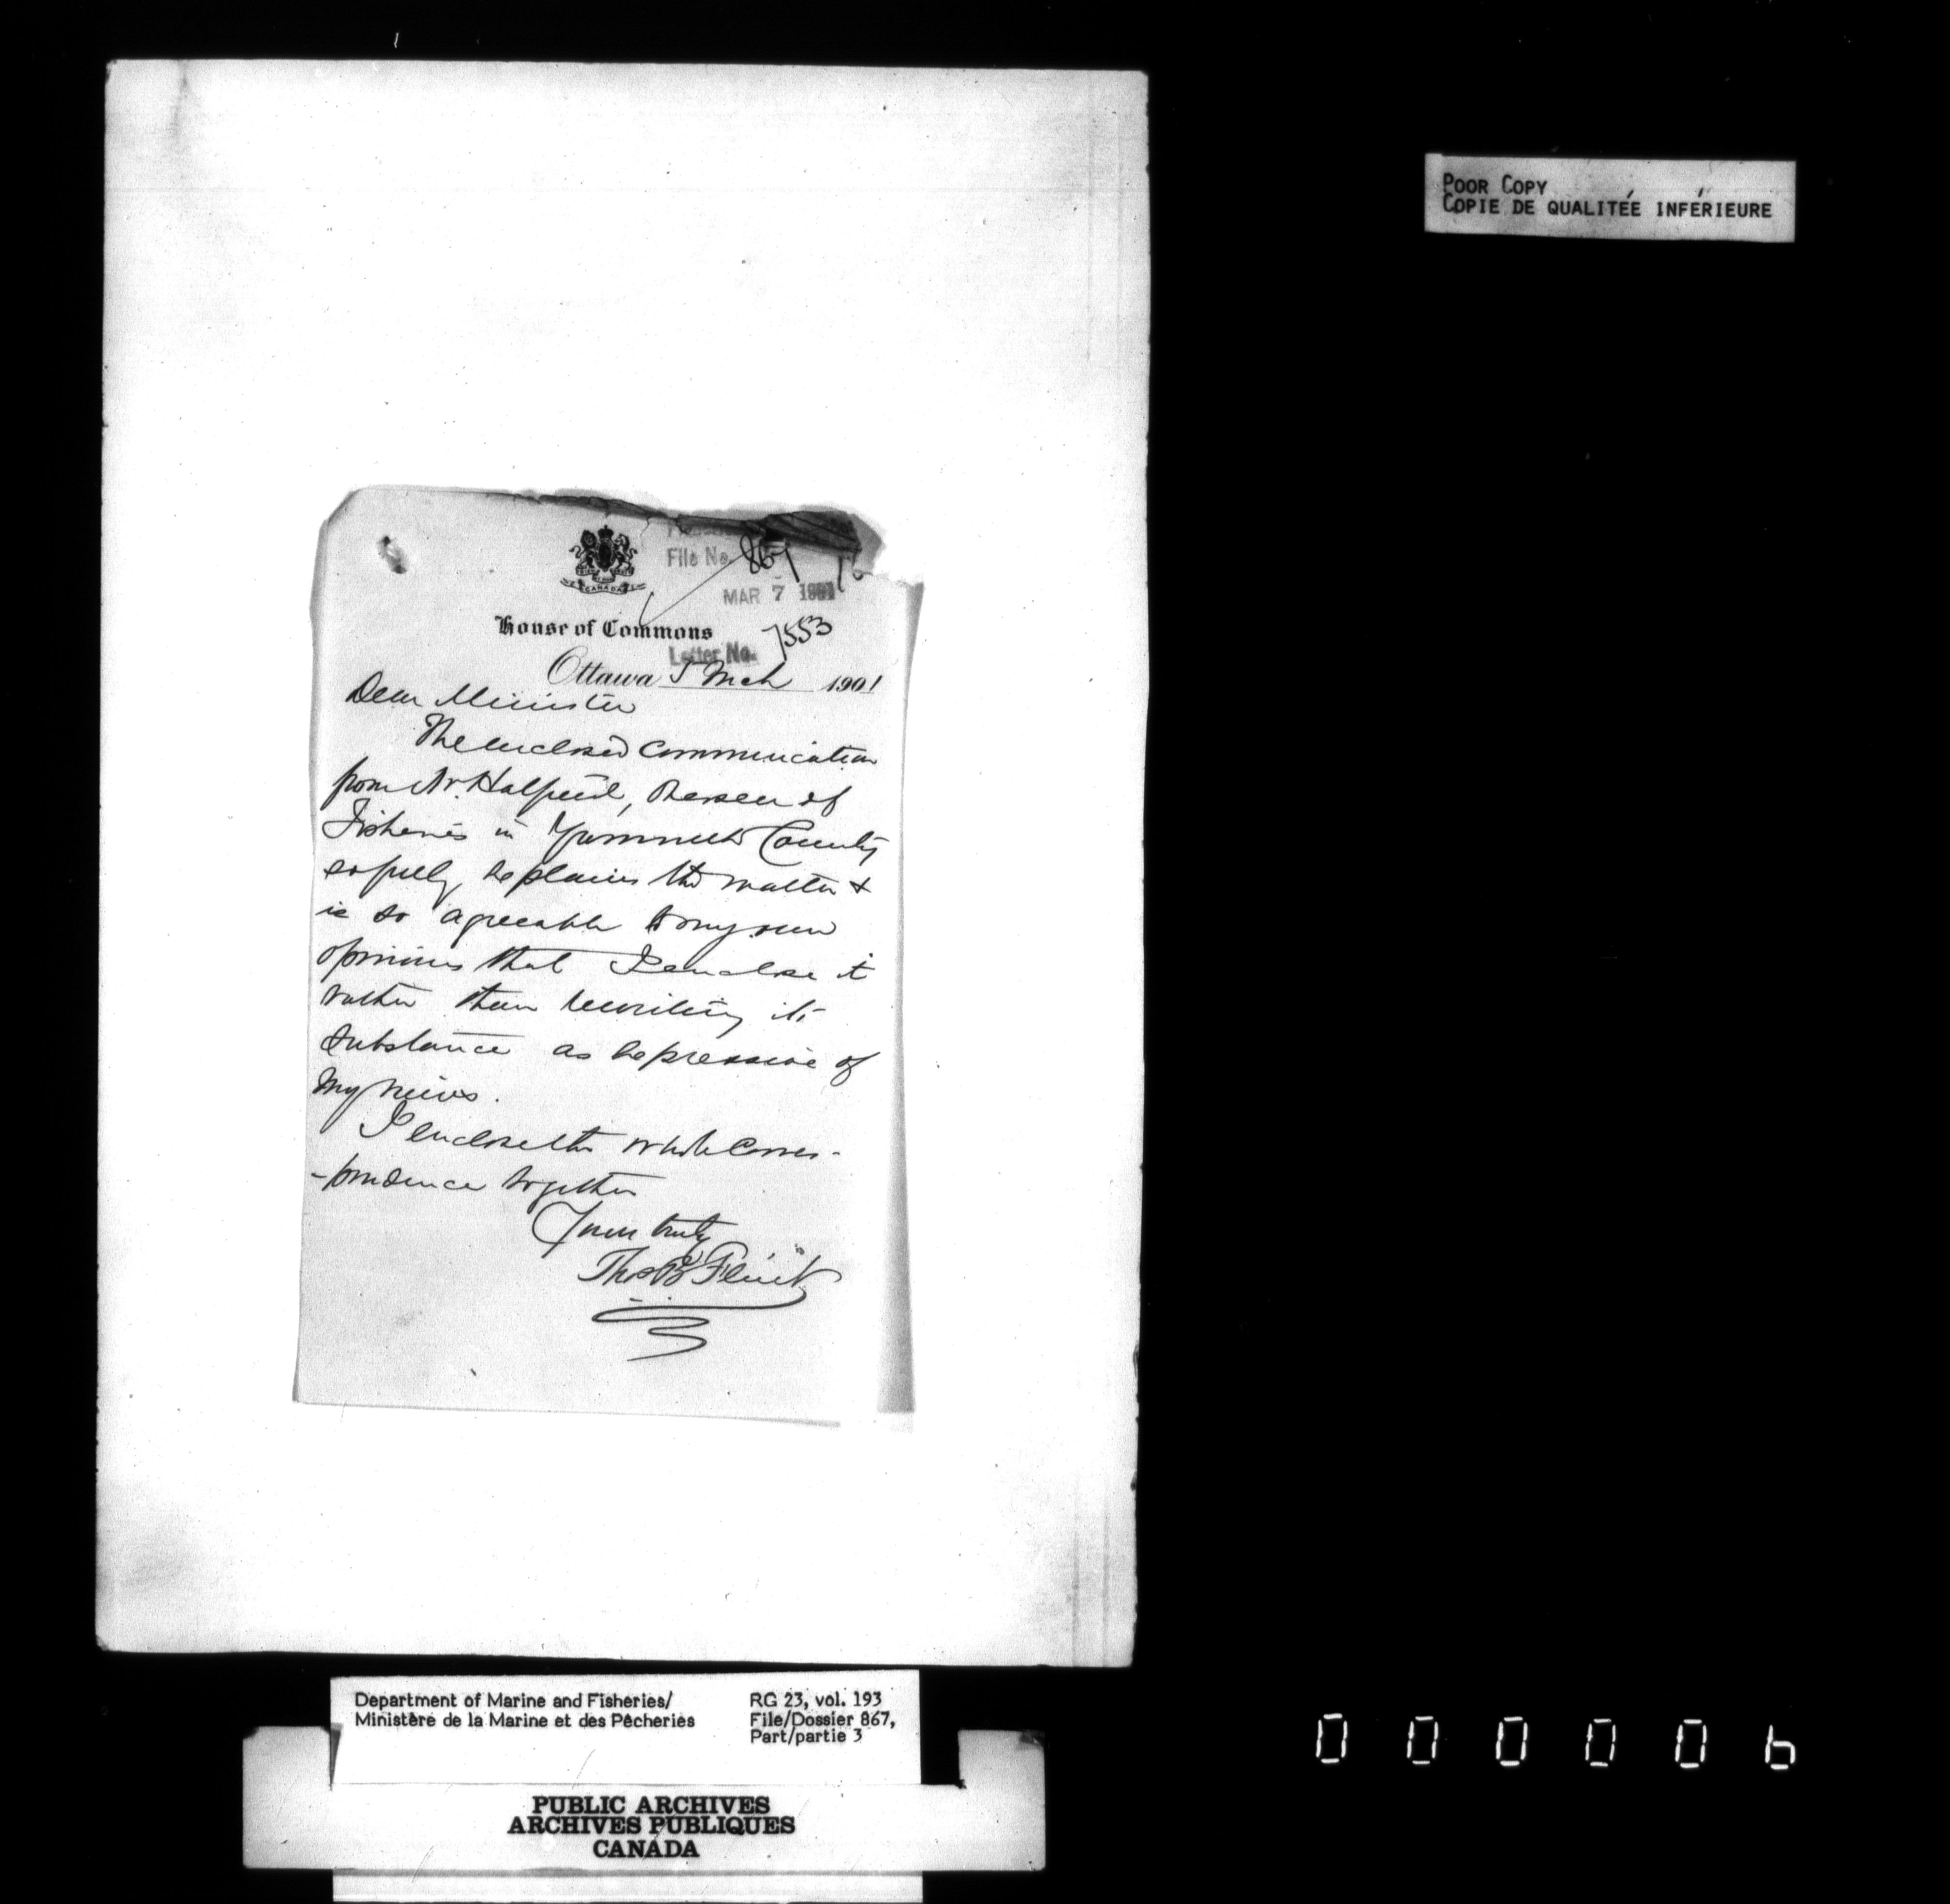 POOR COPY
COPIE DE QUALITÉE INFÉRIEURE
File No. 867
MAR 7 1901
CANADA
House of Commons
Letter No. 7553
Ottawa 5 Mch 1901
Dear Minister
The enclosed communication
from Mr. Hatfield, Overseer of
Fisheries in Yarmouth County
so fully explains the matter &
is so agreeable to my own
opinions that I enclose it
rather than rewriting its
substance as expressive of
my views.
I enclose the whole corres-
-pondence together
Yours truly
Thos B Flint
Department of Marine and Fisheries/
Ministère de la Marine et des Pêcheries
RG 23, vol. 193
File/Dossier 867,
Part/partie 3
PUBLIC ARCHIVES
ARCHIVES PUBLIQUES
CANADA
000006